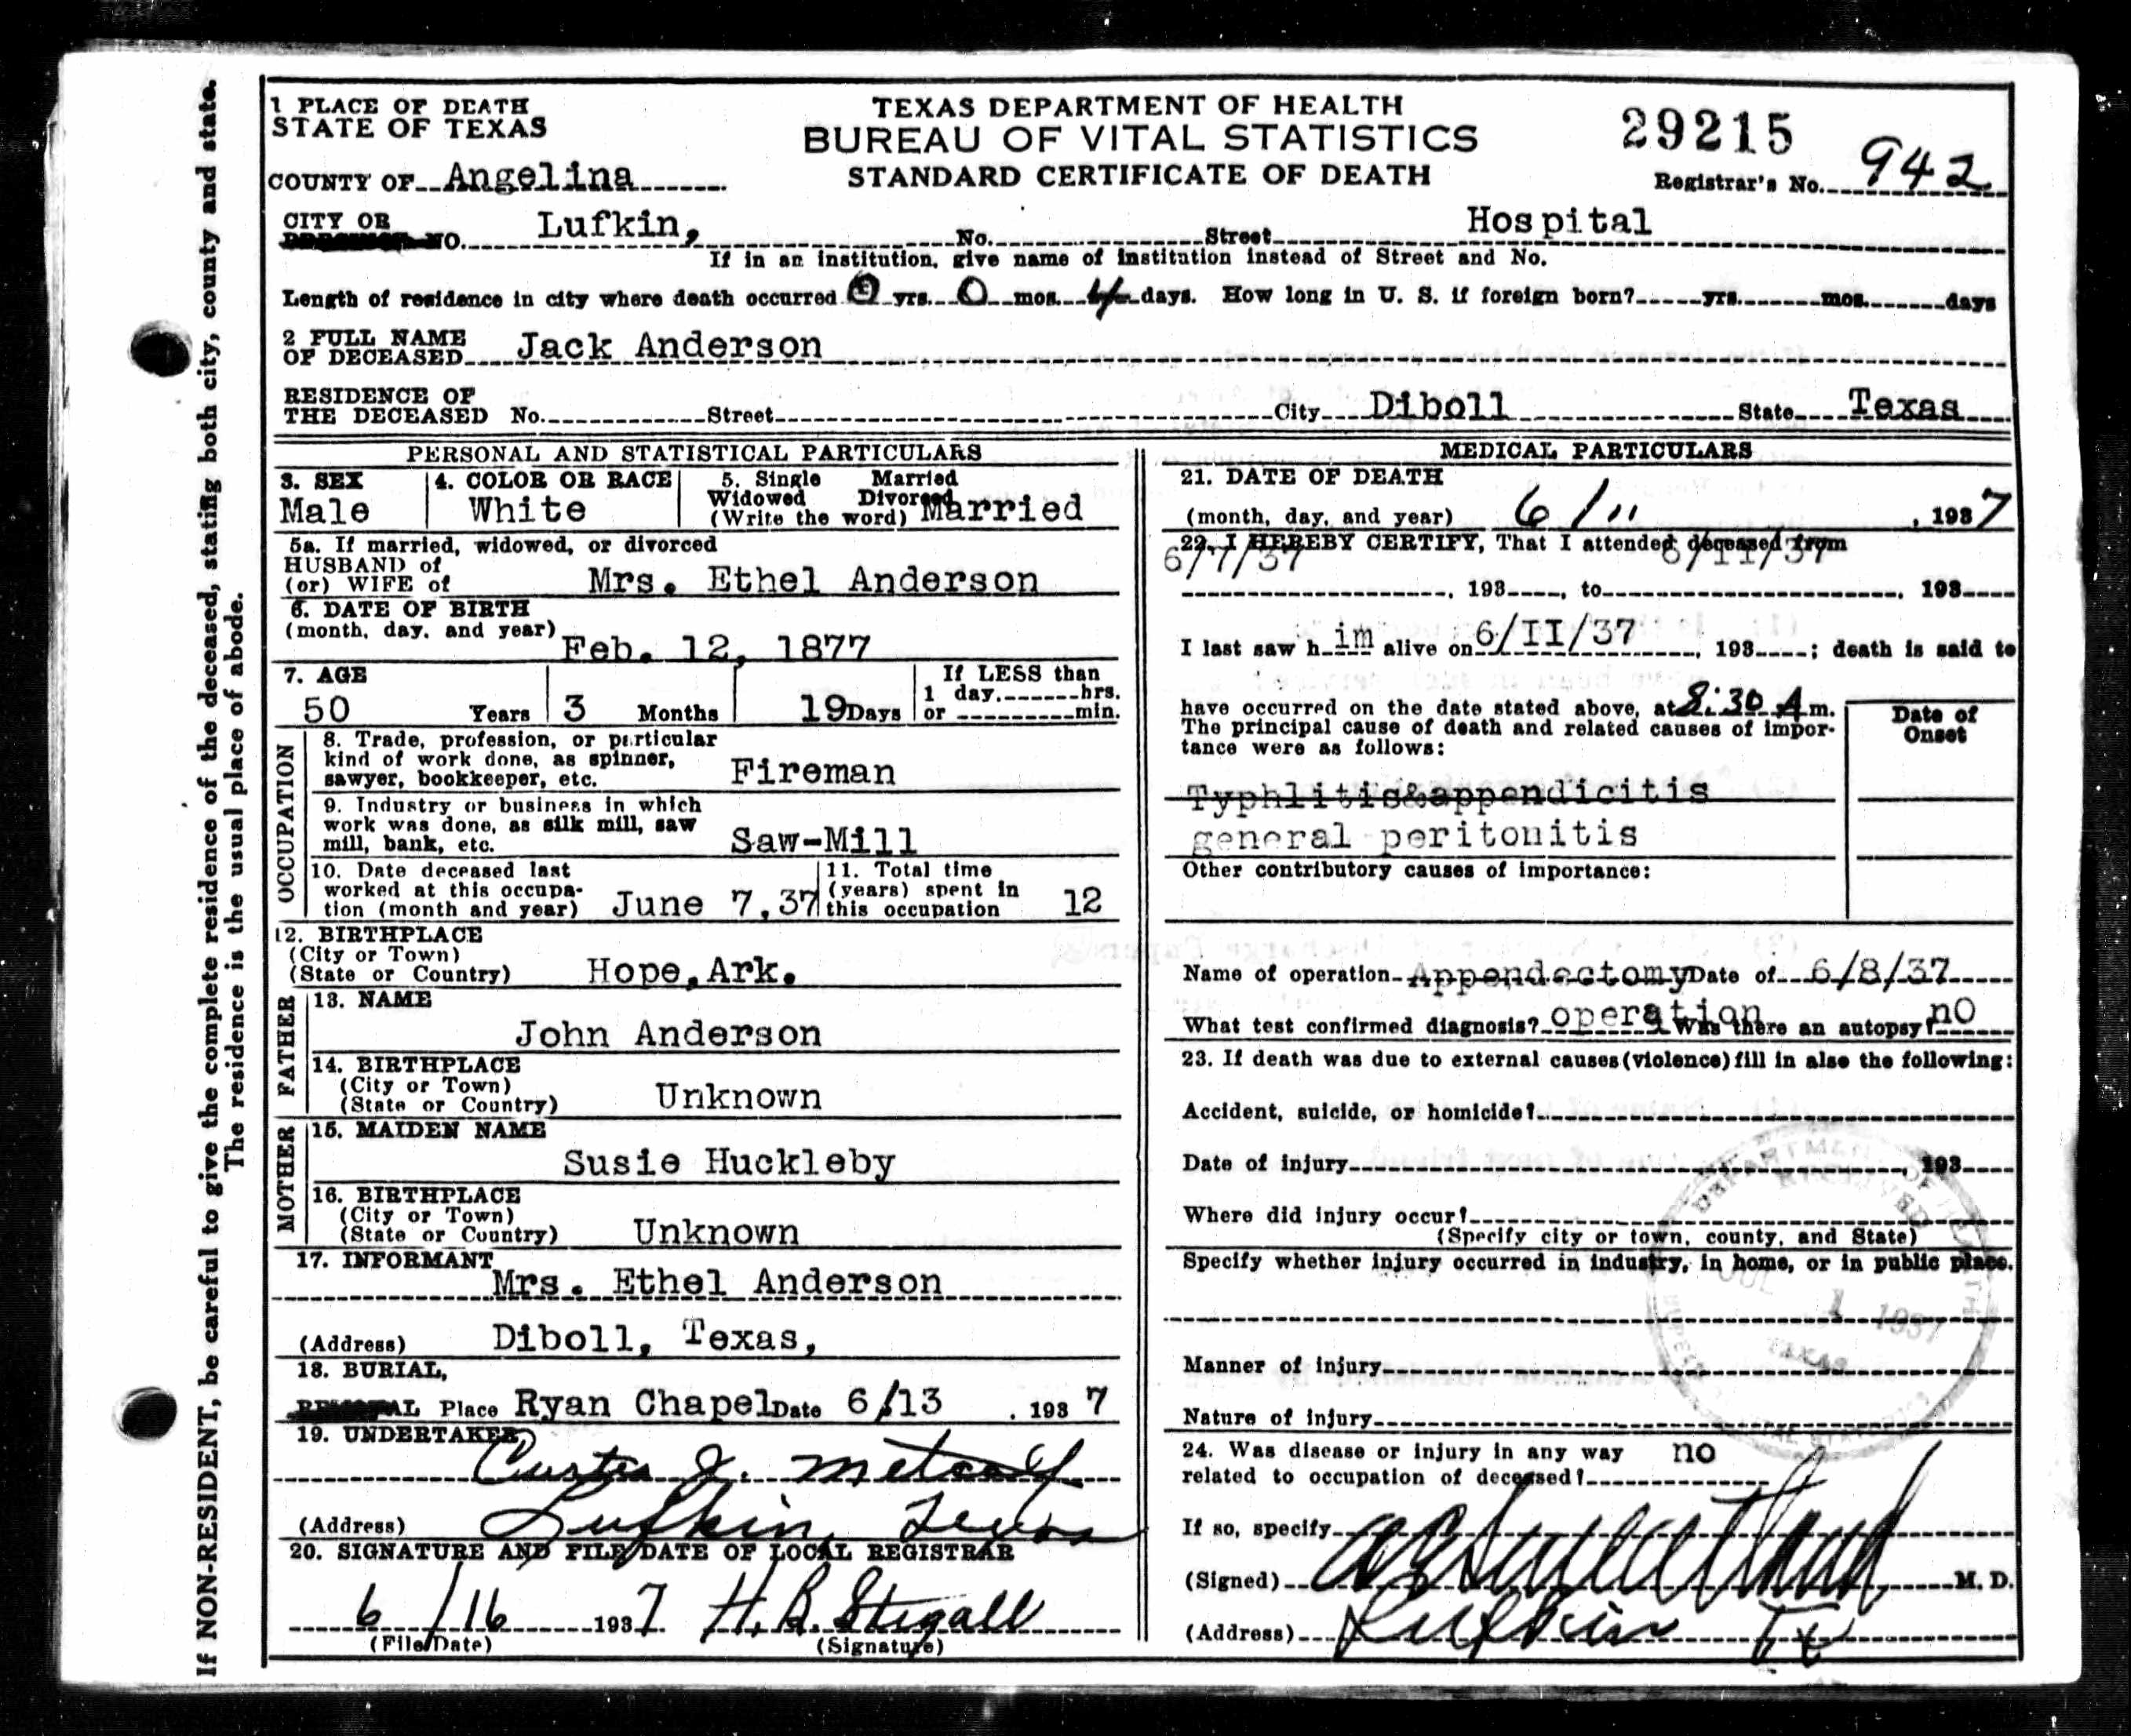 If NON-RESIDENT, be careful to give the complete residence of the deceased, stating both city, county and state.
The residence is the usual place of abode.
1 PLACE OF DEATH
STATE OF TEXAS
COUNTY OF Angelina
TEXAS DEPARTMENT OF HEALTH
BUREAU OF VITAL STATISTICS
STANDARD CERTIFICATE OF DEATH
29215
Registrar's No. 942
CITY OR
NO. Lufkin, No. Street Hospital
If in an institution, give name of institution instead of Street and No.
Length of residence in city where death occurred 0 yrs. 0 mos. 4 days. How long in U. S. if foreign born? yrs. mos. days
2 FULL NAME
OF DECEASED Jack Anderson
RESIDENCE OF
THE DECEASED No. Street City Diboll State Texas
PERSONAL AND STATISTICAL PARTICULARS
3. SEX
Male
4. COLOR OR RACE
White
5. Single Married
Widowed Divorced
(Write the word) Married
5a. If married, widowed, or divorced
HUSBAND of
(or) WIFE of Mrs. Ethel Anderson
6. DATE OF BIRTH
(month, day, and year) Feb. 12, 1877
7. AGE
50 Years 3 Months 19 Days
If LESS than
1 day, hrs.
or min.
OCCUPATION
8. Trade, profession, or particular
kind of work done, as spinner,
sawyer, bookkeeper, etc. Fireman
9. Industry or business in which
work was done, as silk mill, saw
mill, bank, etc. Saw-Mill
10. Date deceased last
worked at this occupa-
tion (month and year) June 7,37
11. Total time
(years) spent in
this occupation 12
12. BIRTHPLACE
(City or Town)
(State or Country) Hope, Ark.
FATHER
13. NAME
John Anderson
14. BIRTHPLACE
(City or Town)
(State or Country) Unknown
MOTHER
15. MAIDEN NAME
Susie Huckleby
16. BIRTHPLACE
(City or Town)
(State or Country) Unknown
17. INFORMANT
Mrs. Ethel Anderson
(Address) Diboll, Texas,
18. BURIAL,
AL Place Ryan Chapel Date 6/13 , 1937
19. UNDERTAKER
Curtis J. Metcalf
(Address) Lufkin, Texas
20. SIGNATURE AND FILE DATE OF LOCAL REGISTRAR
6/16 1937 H. B. Stegall
(File Date) (Signature)
MEDICAL PARTICULARS
21. DATE OF DEATH
(month, day, and year) 6/11 , 1937
22. I HEREBY CERTIFY, That I attended deceased from
6/7/37 , 193 , to 6/11/37 , 193
I last saw h im alive on 6/II/37 , 193 ; death is said to
have occurred on the date stated above, at 8:30 A m.
The principal cause of death and related causes of impor-
tance were as follows:
Date of
Onset
Typhlitis&appendicitis
general peritonitis
Other contributory causes of importance:
Name of operation Appendectomy Date of 6/8/37
What test confirmed diagnosis? operation Was there an autopsy? nO
23. If death was due to external causes (violence) fill in also the following:
Accident, suicide, or homicide?
Date of injury , 193
Where did injury occur?
(Specify city or town, county, and State)
Specify whether injury occurred in industry, in home, or in public place.
Manner of injury
Nature of injury
24. Was disease or injury in any way
related to occupation of deceased? no
If so, specify
(Signed) M. D.
(Address) Lufkin Tx
DEPARTMENT OF HEALTH
RECEIVED
JUL 1 1937
TEXAS